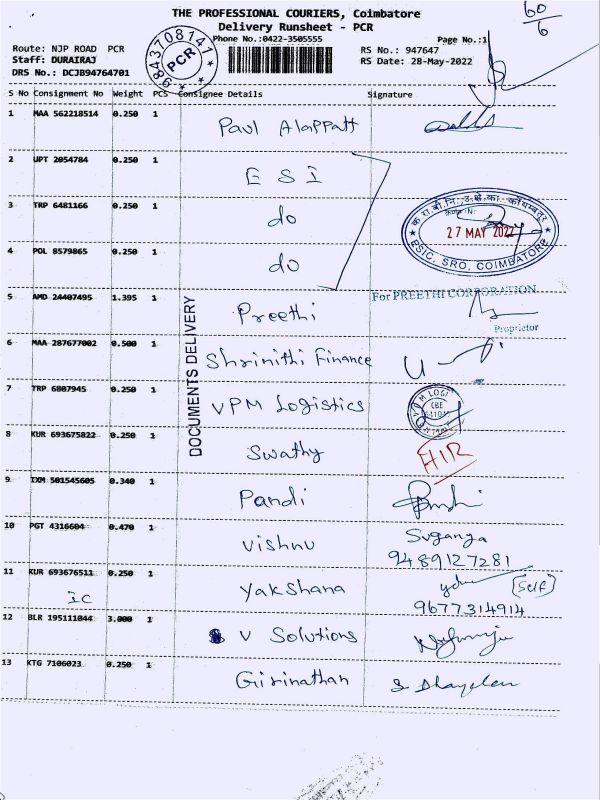 THE PROFESSIONAL COURIERS, Coimbatore
Delivery Runsheet - PCR
60/6
Route: NJP ROAD PCR
Phone No.:0422-3505555
Page No.:1
Staff: DURAIRAJ
RS No.: 947647
DRS No.: DCJB94764701
RS Date: 28-May-2022
9843708141
PCR
S No Consignment No Weight PCS Consignee Details Signature
1 MAA 562218514 0.250 1 Paul Alappatt
2 UPT 2054784 0.250 1 E S I
3 TRP 6481166 0.250 1 do
क.रा.बी.नि., उ.क्षे.का. कोयम्बत्तूर
27 MAY 2022
ESIC, SRO, COIMBATORE
4 POL 8579865 0.250 1 do
5 AMD 24407495 1.395 1 Preethi
For PREETHI CORPORATION
Proprietor
DOCUMENTS DELIVERY
6 MAA 287677002 0.500 1 Shrinithi Finance
7 TRP 6807945 0.250 1 VPM Logistics
VPM LOGI
CBE
8 KUR 693675822 0.250 1 Swathy HIR
9 IXM 501545605 0.340 1 Pandi
10 PGT 4316604 0.470 1 Vishnu Suganya
9489127281
11 KUR 693676511 0.250 1 Yakshana (Self)
IC
9677314914
12 BLR 195111044 3.000 1 V Solutions
13 KTG 7106023 0.250 1 Girinathan